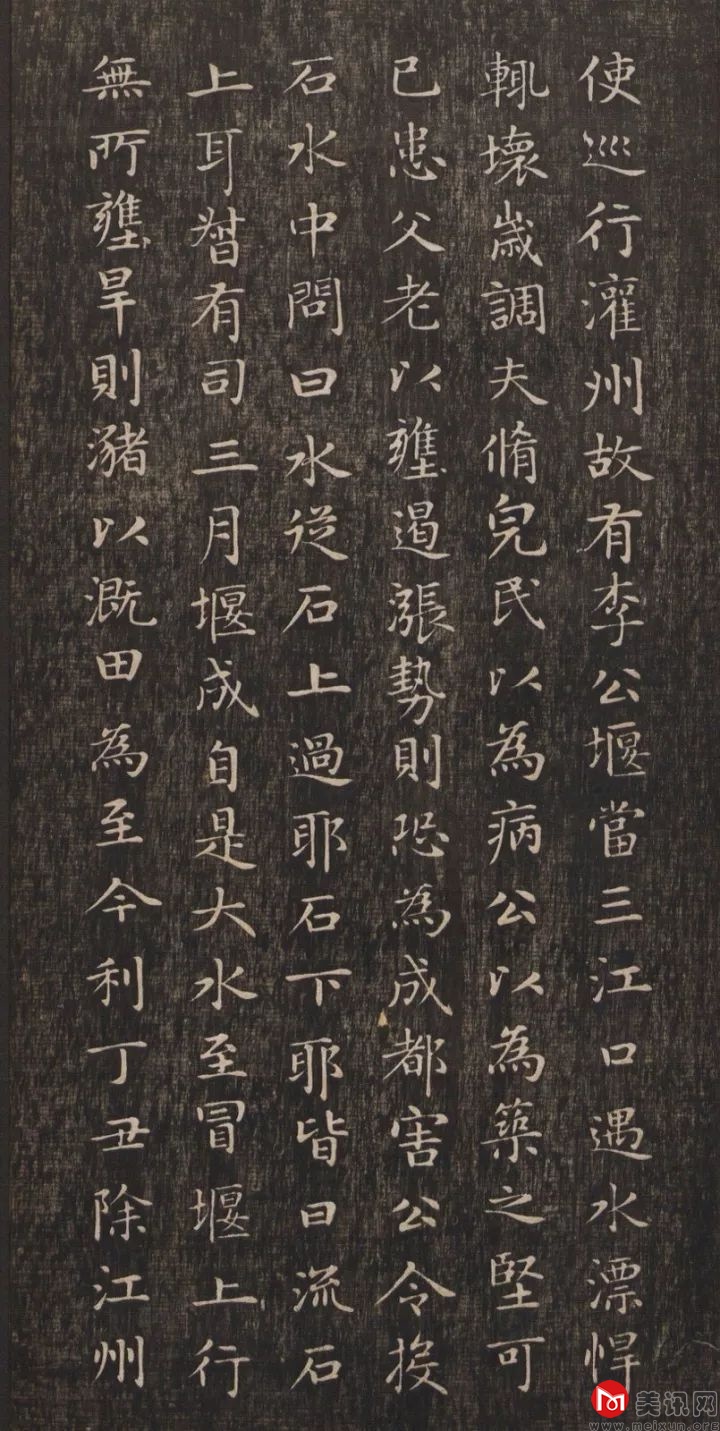 使巡行灌州故有李公堰當三江口遇水漂悍
輒壞歲調夫脩皃民以為病公以為築之堅可
已患父老以壅遏漲勢則恐為成都害公令投
石水中問曰水從石上過耶石下耶皆曰流石
上耳督有司三月堰成自是大水至冒堰上行
無所壅旱則瀦以溉田為至今利丁丑除江州
美讯网
www.meixun.org